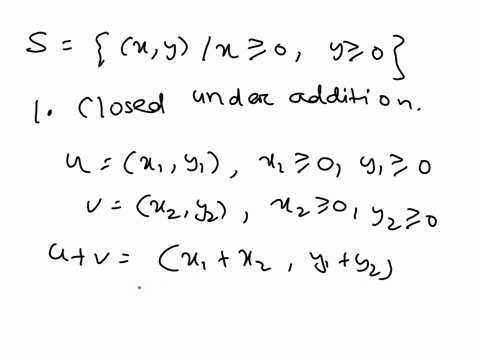 S = { (x, y) / x ≥ 0, y ≥ 0 }
1. Closed under addition.
u = (x₁, y₁), x₁ ≥ 0, y₁ ≥ 0
v = (x₂, y₂), x₂ ≥ 0, y₂ ≥ 0
u + v = (x₁ + x₂, y₁ + y₂)